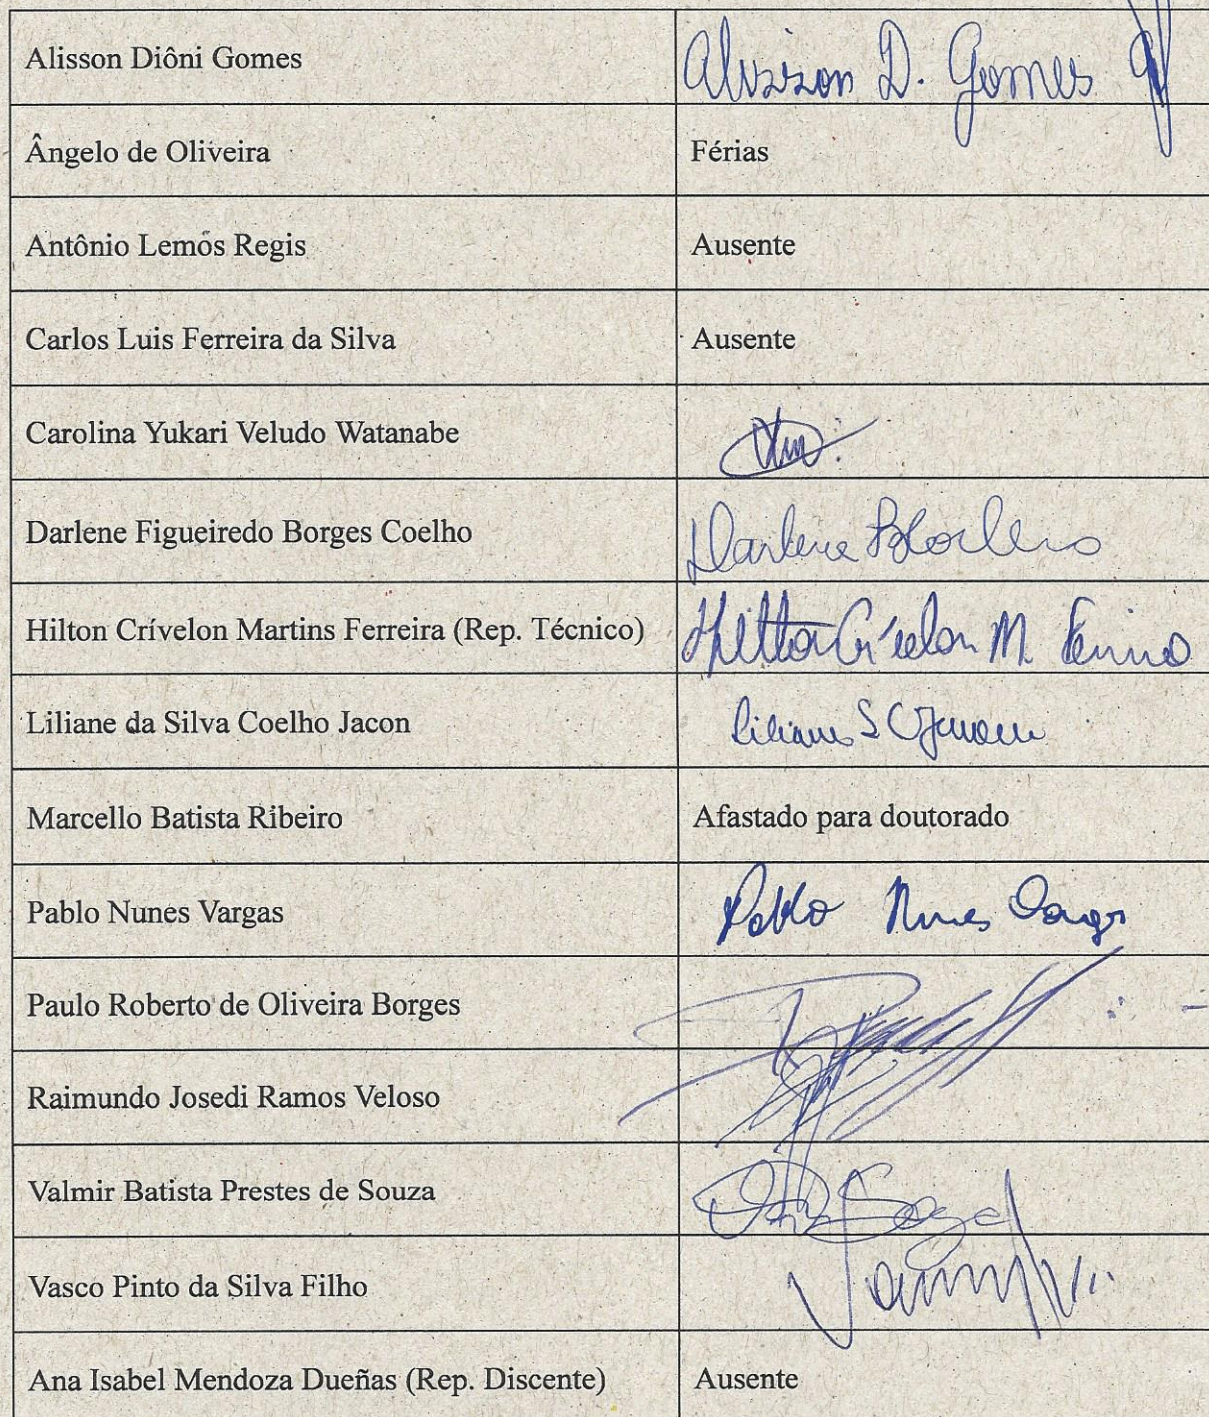 Alisson Diôni Gomes
Alisson D. Gomes
Ângelo de Oliveira
Férias
Antônio Lemos Regis
Ausente
Carlos Luis Ferreira da Silva
Ausente
Carolina Yukari Veludo Watanabe
Darlene Figueiredo Borges Coelho
Darlene
Hilton Crívelon Martins Ferreira (Rep. Técnico)
Hilton Crívelon M.
Liliane da Silva Coelho Jacon
Liliane S C Jacon
Marcello Batista Ribeiro
Afastado para doutorado
Pablo Nunes Vargas
Pablo Nunes Vargas
Paulo Roberto de Oliveira Borges
Raimundo Josedi Ramos Veloso
Valmir Batista Prestes de Souza
Vasco Pinto da Silva Filho
Ana Isabel Mendoza Dueñas (Rep. Discente)
Ausente